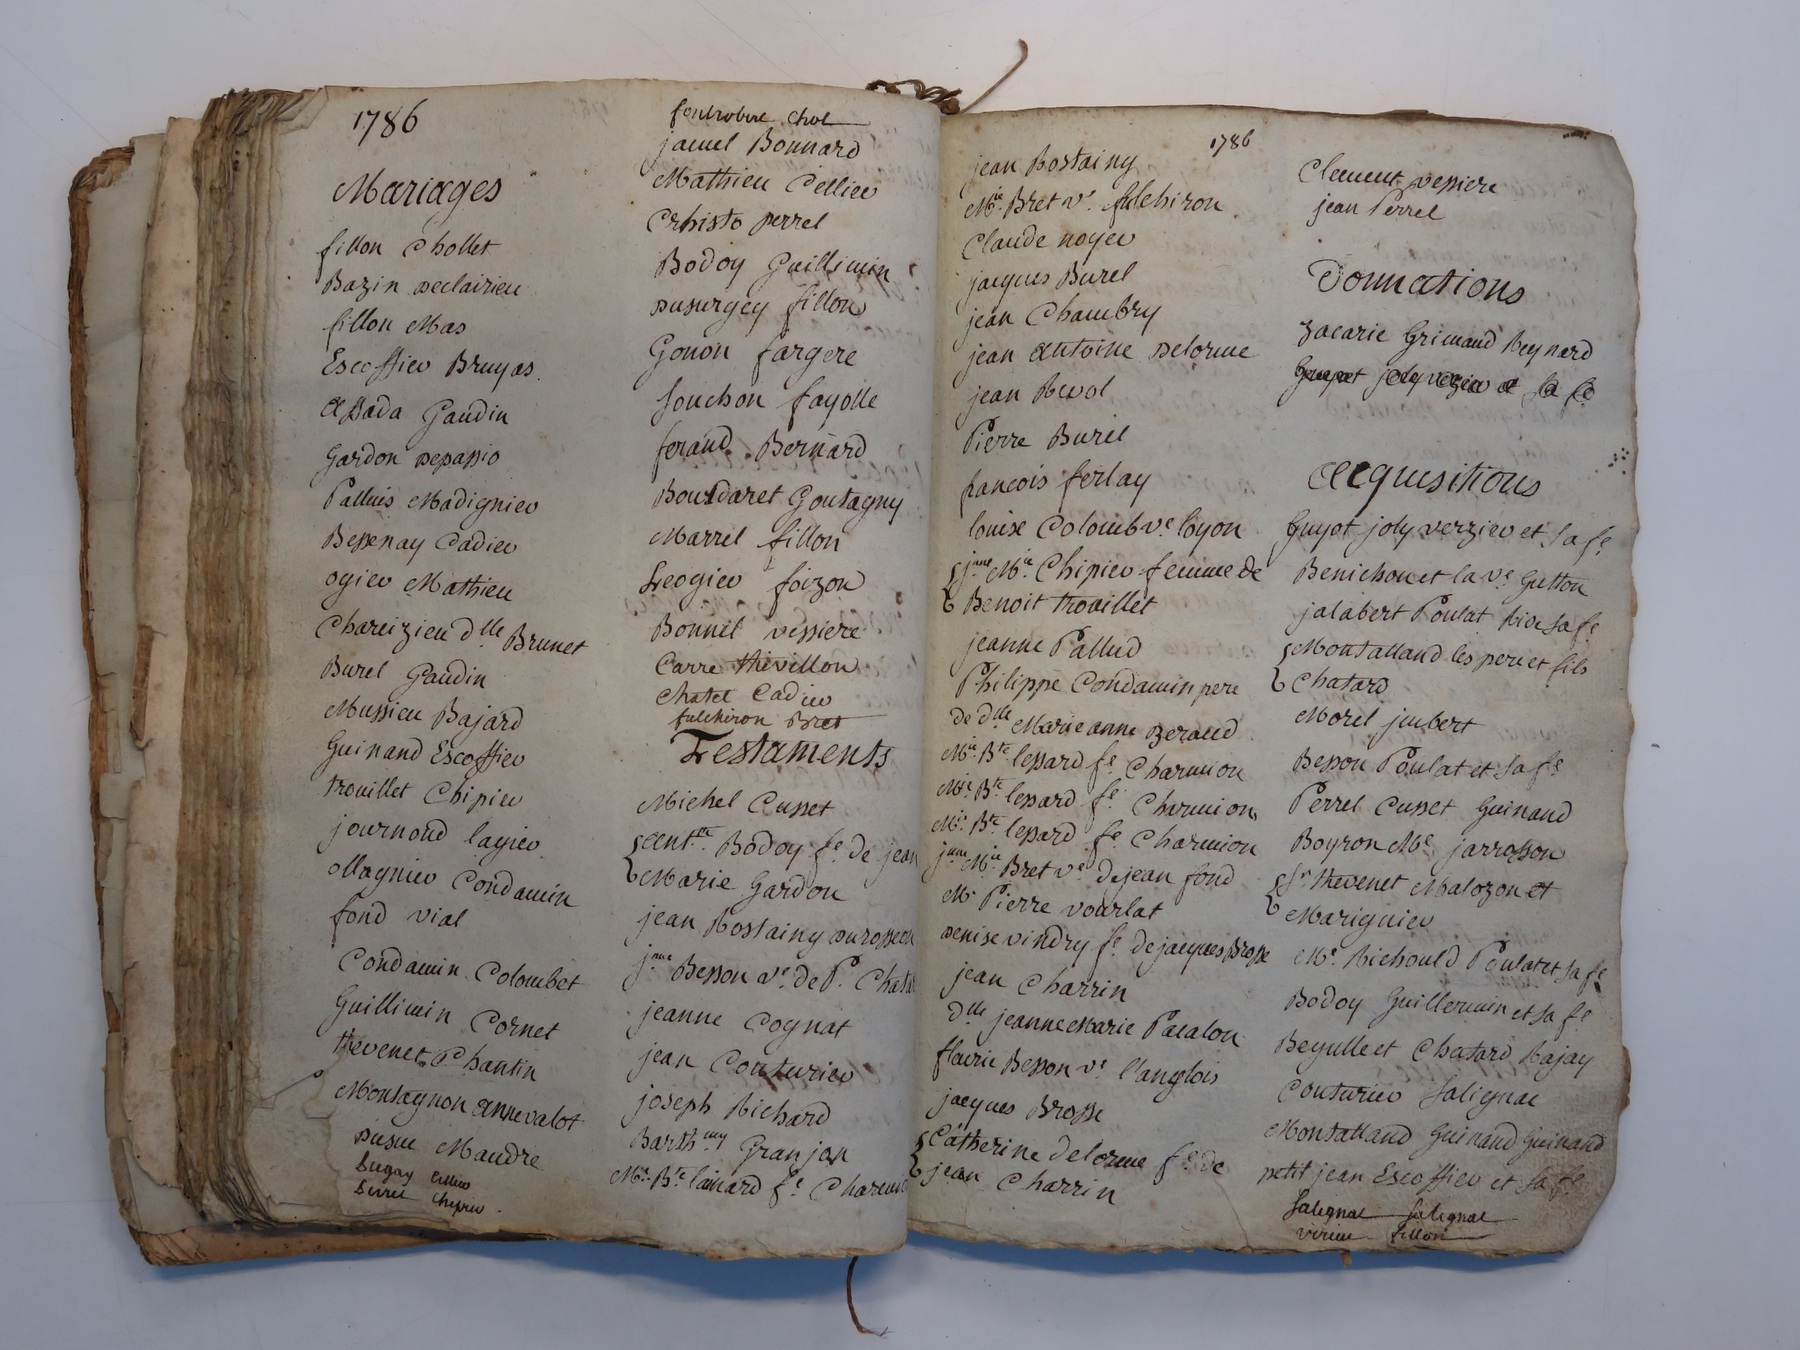 1786
Mariages
fillon Chollet
Bazin declairieu
fillon Mas
Escoffier Bruyas
Assada Gaudin
Gardon depassio
Palluis Madignier
Bessenay Cadier
ogier Mathieu
Chareizieu dlle Brunet
Burel Gaudin
Mussieu Bajard
Guinand Escoffier
trouillet Chipier
journoud lagier
ollagnier Condamin
fond vial
Condamin Colombet
Guillimin Cornet
thevenet Chantin
Montagnon Anne valot
Maudre
Chipier
Chol
jamel Bonnard
Mathieu Cellier
Crhisto perrel
Bodoy Guillimin
dusurgey fillon
Gonon fargere
souchon fayolle
feraud Bernard
Bourdaret Goutagny
Marrel fillon
Leogier foizon
Bonnel vessiere
Carre thevillon
Chatel Cadier
fulchiron Bret
Testaments
Michel Cusset
Antte Bodoy fe de jean
Marie Gardon
jean Rostaing durosseon
jnne Besson ve de P. Chata
jeanne Cognat
jean Couturier
joseph Richard
Barthmy Granjon
Mie Bte lainard fe
1786
jean Rostaing
Mie Bret ve fulchiron
Claude noyer
jacques Burel
jean Chambry
jean Antoine delorme
jean Revol
Pierre Burel
francois ferlay
louise Colomb ve loyon
jnne Mie Chipier femme de
Benoit trouillet
jeanne Pallud
Philippe Condamin pere
de dlle Marie anne Beraud
Mie Bte lessard fe Charmion
Mie Bte lessard fe Charmion
Mie Bte lessard fe Charmion
jnne Mie Bret ve de jean fond
Mr Pierre vourlat
denise vindry fe de jacques Brosse
jean Charrin
dlle jeanne Marie Pacalon
flaurie Besson ve l'anglois
jacques Brosse
Catherine delorme fe de
jean Charrin
Clement vessiere
jean Perrel
Donnations
zacarie Grimaud Reynard
Acquisitions
Guyot joly verzier et sa fe
Benichon et la ve Gutton
jalabert Poulat Rive sa fe
Montalland les pere et fils
Chatard
Morel jmbert
Besson Poulat et sa fe
Perrel Cusset Guinand
Boyron Me jarrosson
Sr thevenet Malozon et
Marignier
Me Richould Poulat et sa fe
Bodoy Guillermin et sa fe
Beyulle et Chatard Rajay
Couturier salignac
Montalland Guinand Guinand
petit jean Escoffier et sa fe
salignac salignac
fillon